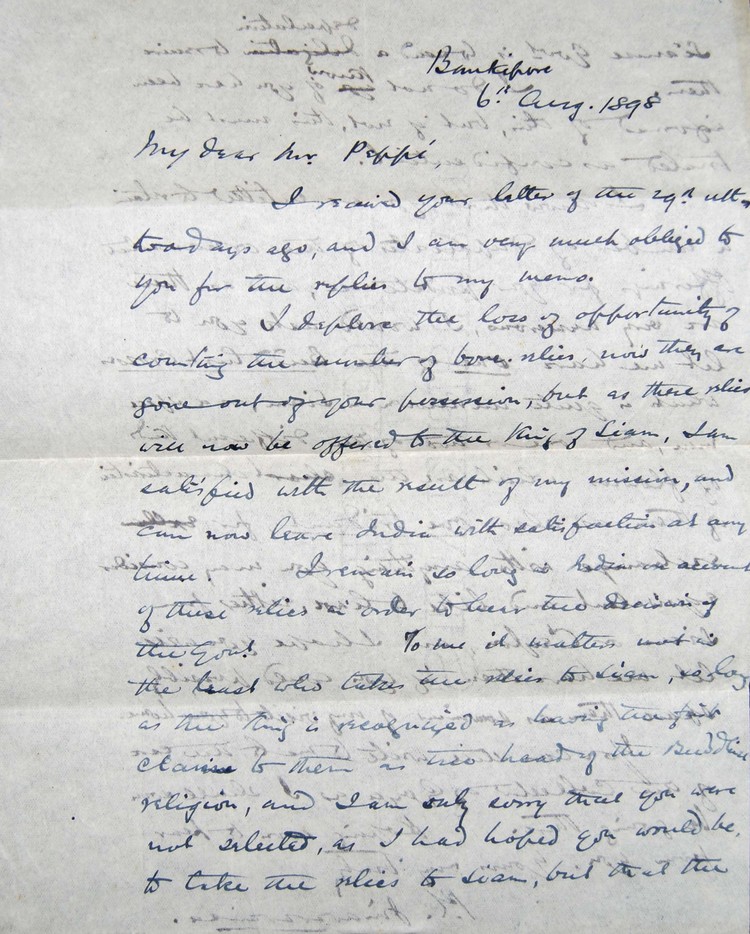 Bankipore
6th Aug. 1898
My dear Mr. Peppé,
I received your letter of the 29th ult.
two days ago, and I am very much obliged to
you for the replies to my memo.
I deplore the loss of opportunity of
counting the number of bone-relics, now they are
gone out of your possession, but as these relics
will now be offered to the King of Siam, I am
satisfied with the result of my mission, and
can now leave India with satisfaction at any
time. I remain so long in India on account
of these relics in order to hear the decision of
the Govt. To me it matters not in
the least who takes the relics to Siam, so long
as the King is recognized as having the first
claim to them as the head of the Buddhist
religion, and I am only sorry that you were
not selected, as I had hoped you would be,
to take the relics to Siam, but that the